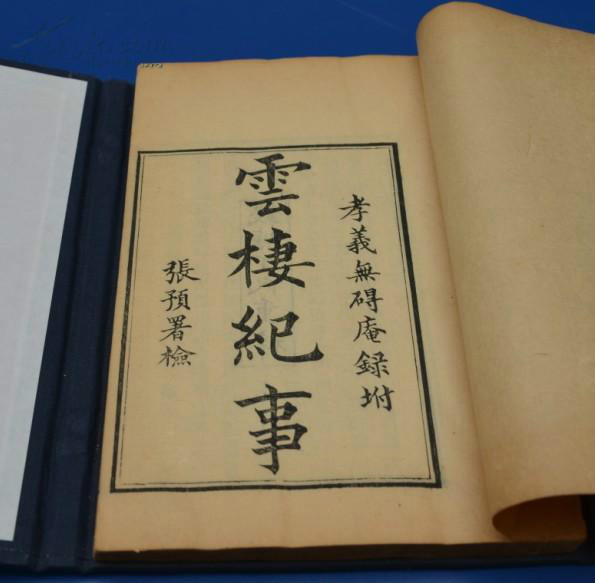 孝義無碍庵録坿
雲棲紀事
張預署檢